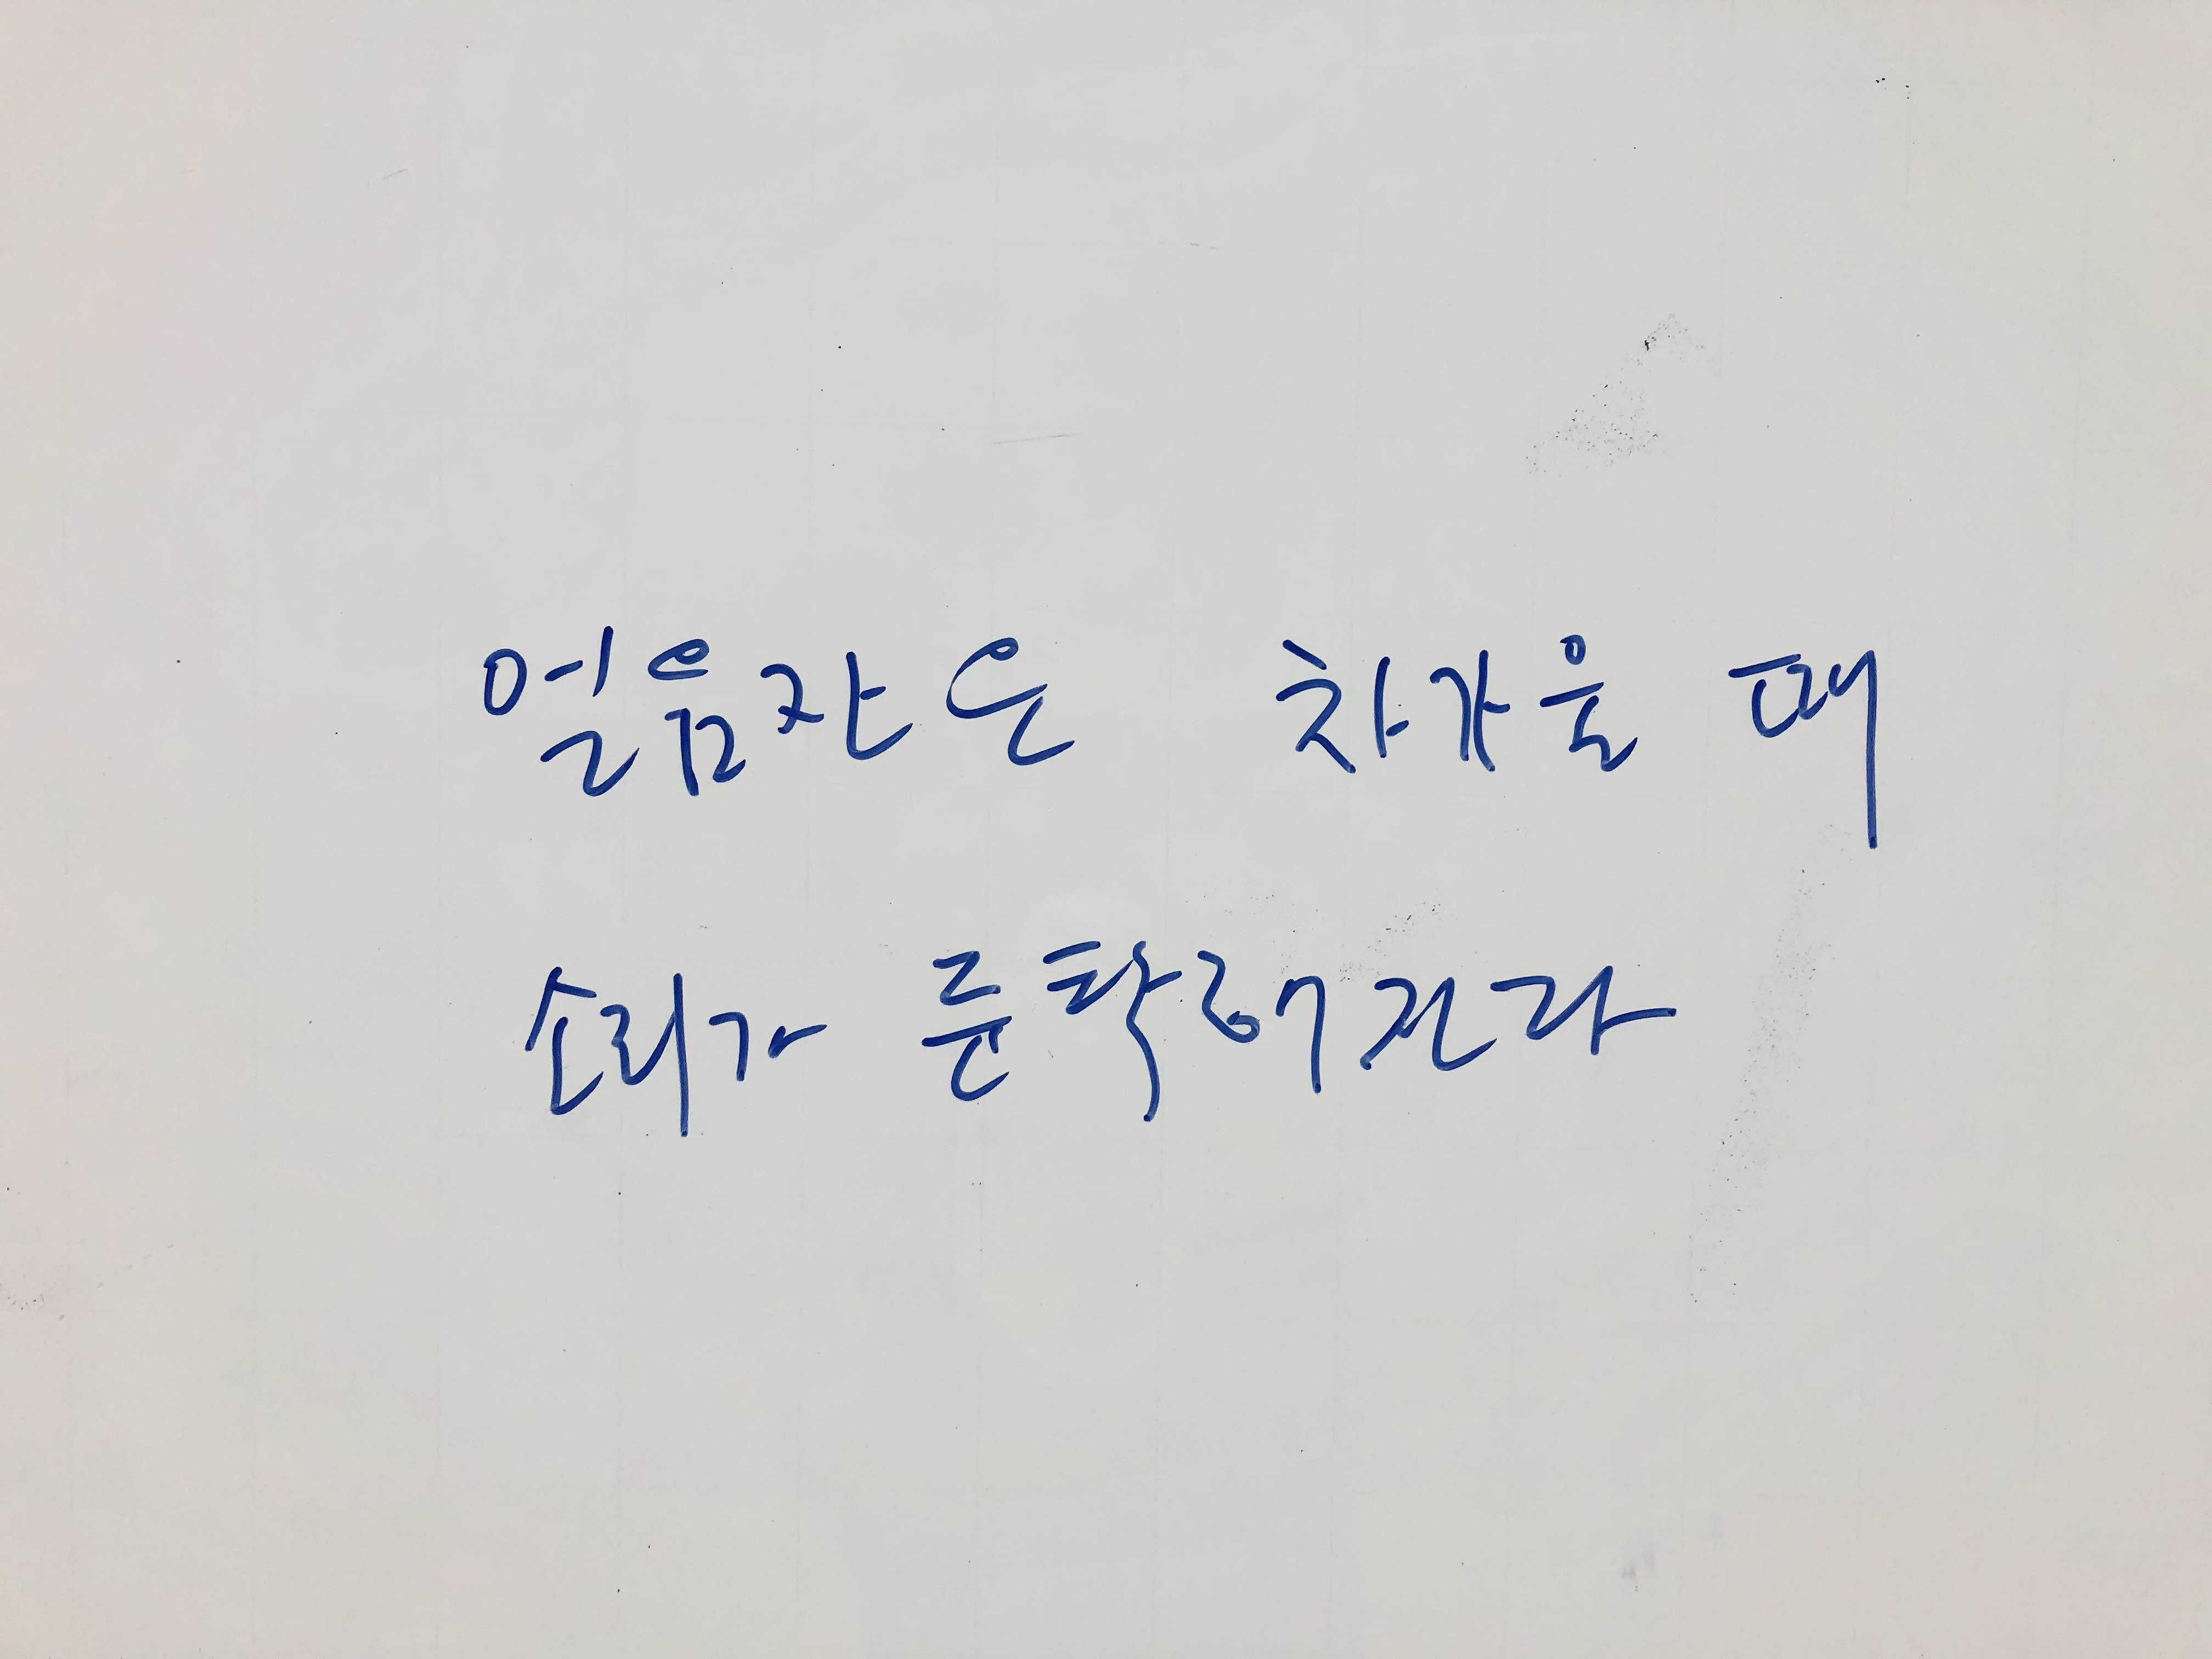 얼음잔은 차가울 때
소리가 둔탁해진다